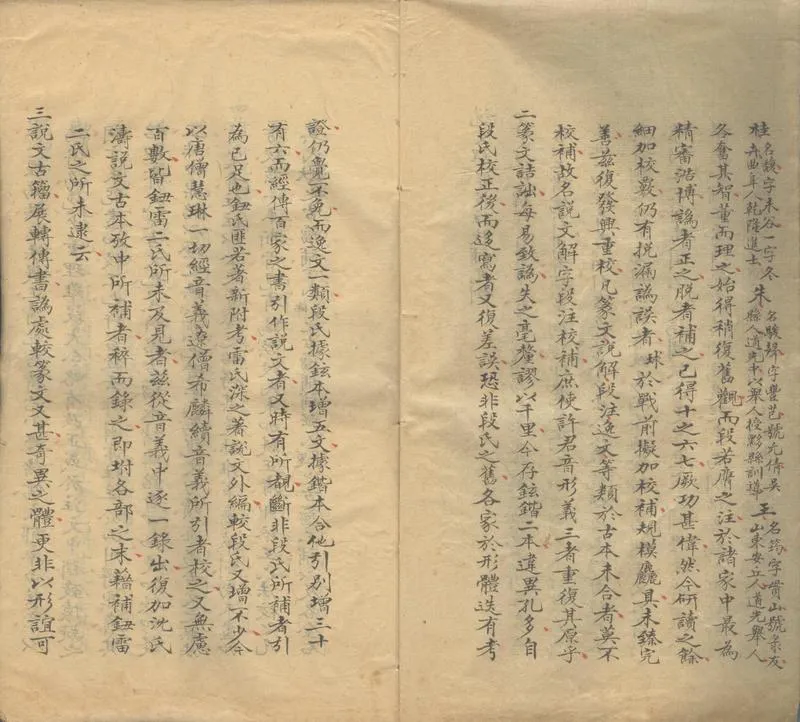 桂名馥字未谷一字冬卉曲阜人乾隆進士朱名駿聲字豐芑號允倩吳縣人道光中以舉人授黟縣訓導王名筠字貫山號菉友山東安丘人道光舉人
各奮其智董而理之始得稍復舊觀而段若膺之注於諸家中最為
精審浩博譌者正之脫者補之已得十之六七厥功甚偉然今研讀之餘
細加校覈仍有挩漏譌誤者球於戰前擬加校補規模麤具未臻完
善茲復發興重校凡篆文說解段注逸文等類於古本未合者莫不
校補故名說文解字段注校補庶使許君音形義三者重復其原乎
二篆文詰詘每易致譌失之毫釐謬以千里今存鉉鍇二本違異孔多自
段氏校正後而迻寫者又復差誤恐非段氏之舊各家於形體迭有考
證仍覺不免而逸文一類段氏據鉉本增五文據鍇本合他引別增三十
有六而經傳百家之書引作說文者又時有所覩斷非段氏所補者引
為已足也鈕氏匪若著新附考雷氏深之著說文外編較段氏又增不少今
以唐僧慧琳一切經音義遼僧希麟續音義所引者校之又無慮
百數皆鈕雷二氏所未及見者茲從音義中逐一錄出復加沈氏
濤說文古本攷中所補者稡而錄之即坿各部之末藉補鈕雷
二氏之所未逮云
三說文古籀展轉傳書譌處較篆文又甚奇異之體更非以形誼可